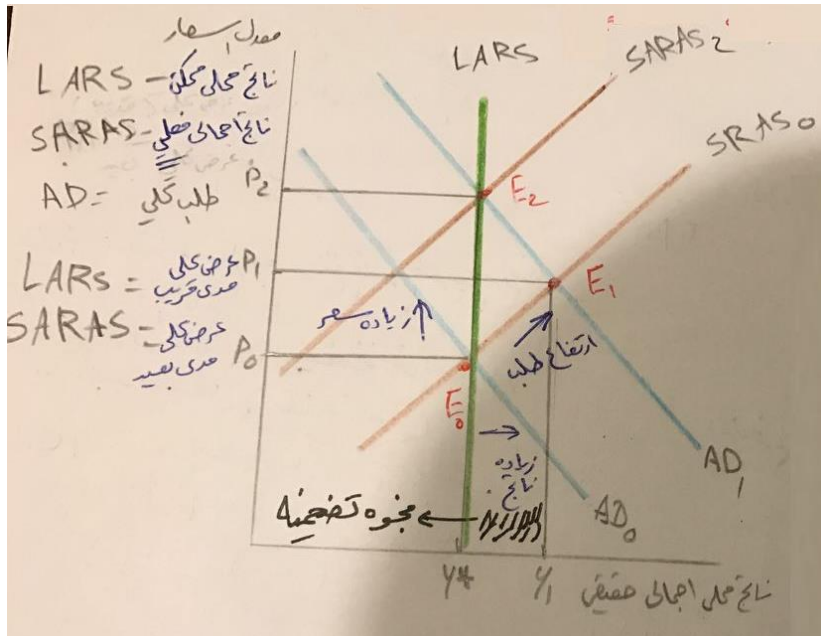 معدل اسعار
LARS – ناتج محلي ممكن
SARAS – ناتج اجمالي فعلي
AD = طلب كلي
LARS = عرض على مدى قريب
SARAS = عرض على مدى بعيد
LARS
SARAS2
SRAS0
P2
P1
P0
E2
E1
E0
زياده سعر
ارتفاع طلب
زياده ناتج
فجوه تضخميه
AD1
AD0
Y*
Y1
ناتج محلي اجمالي حقيقي